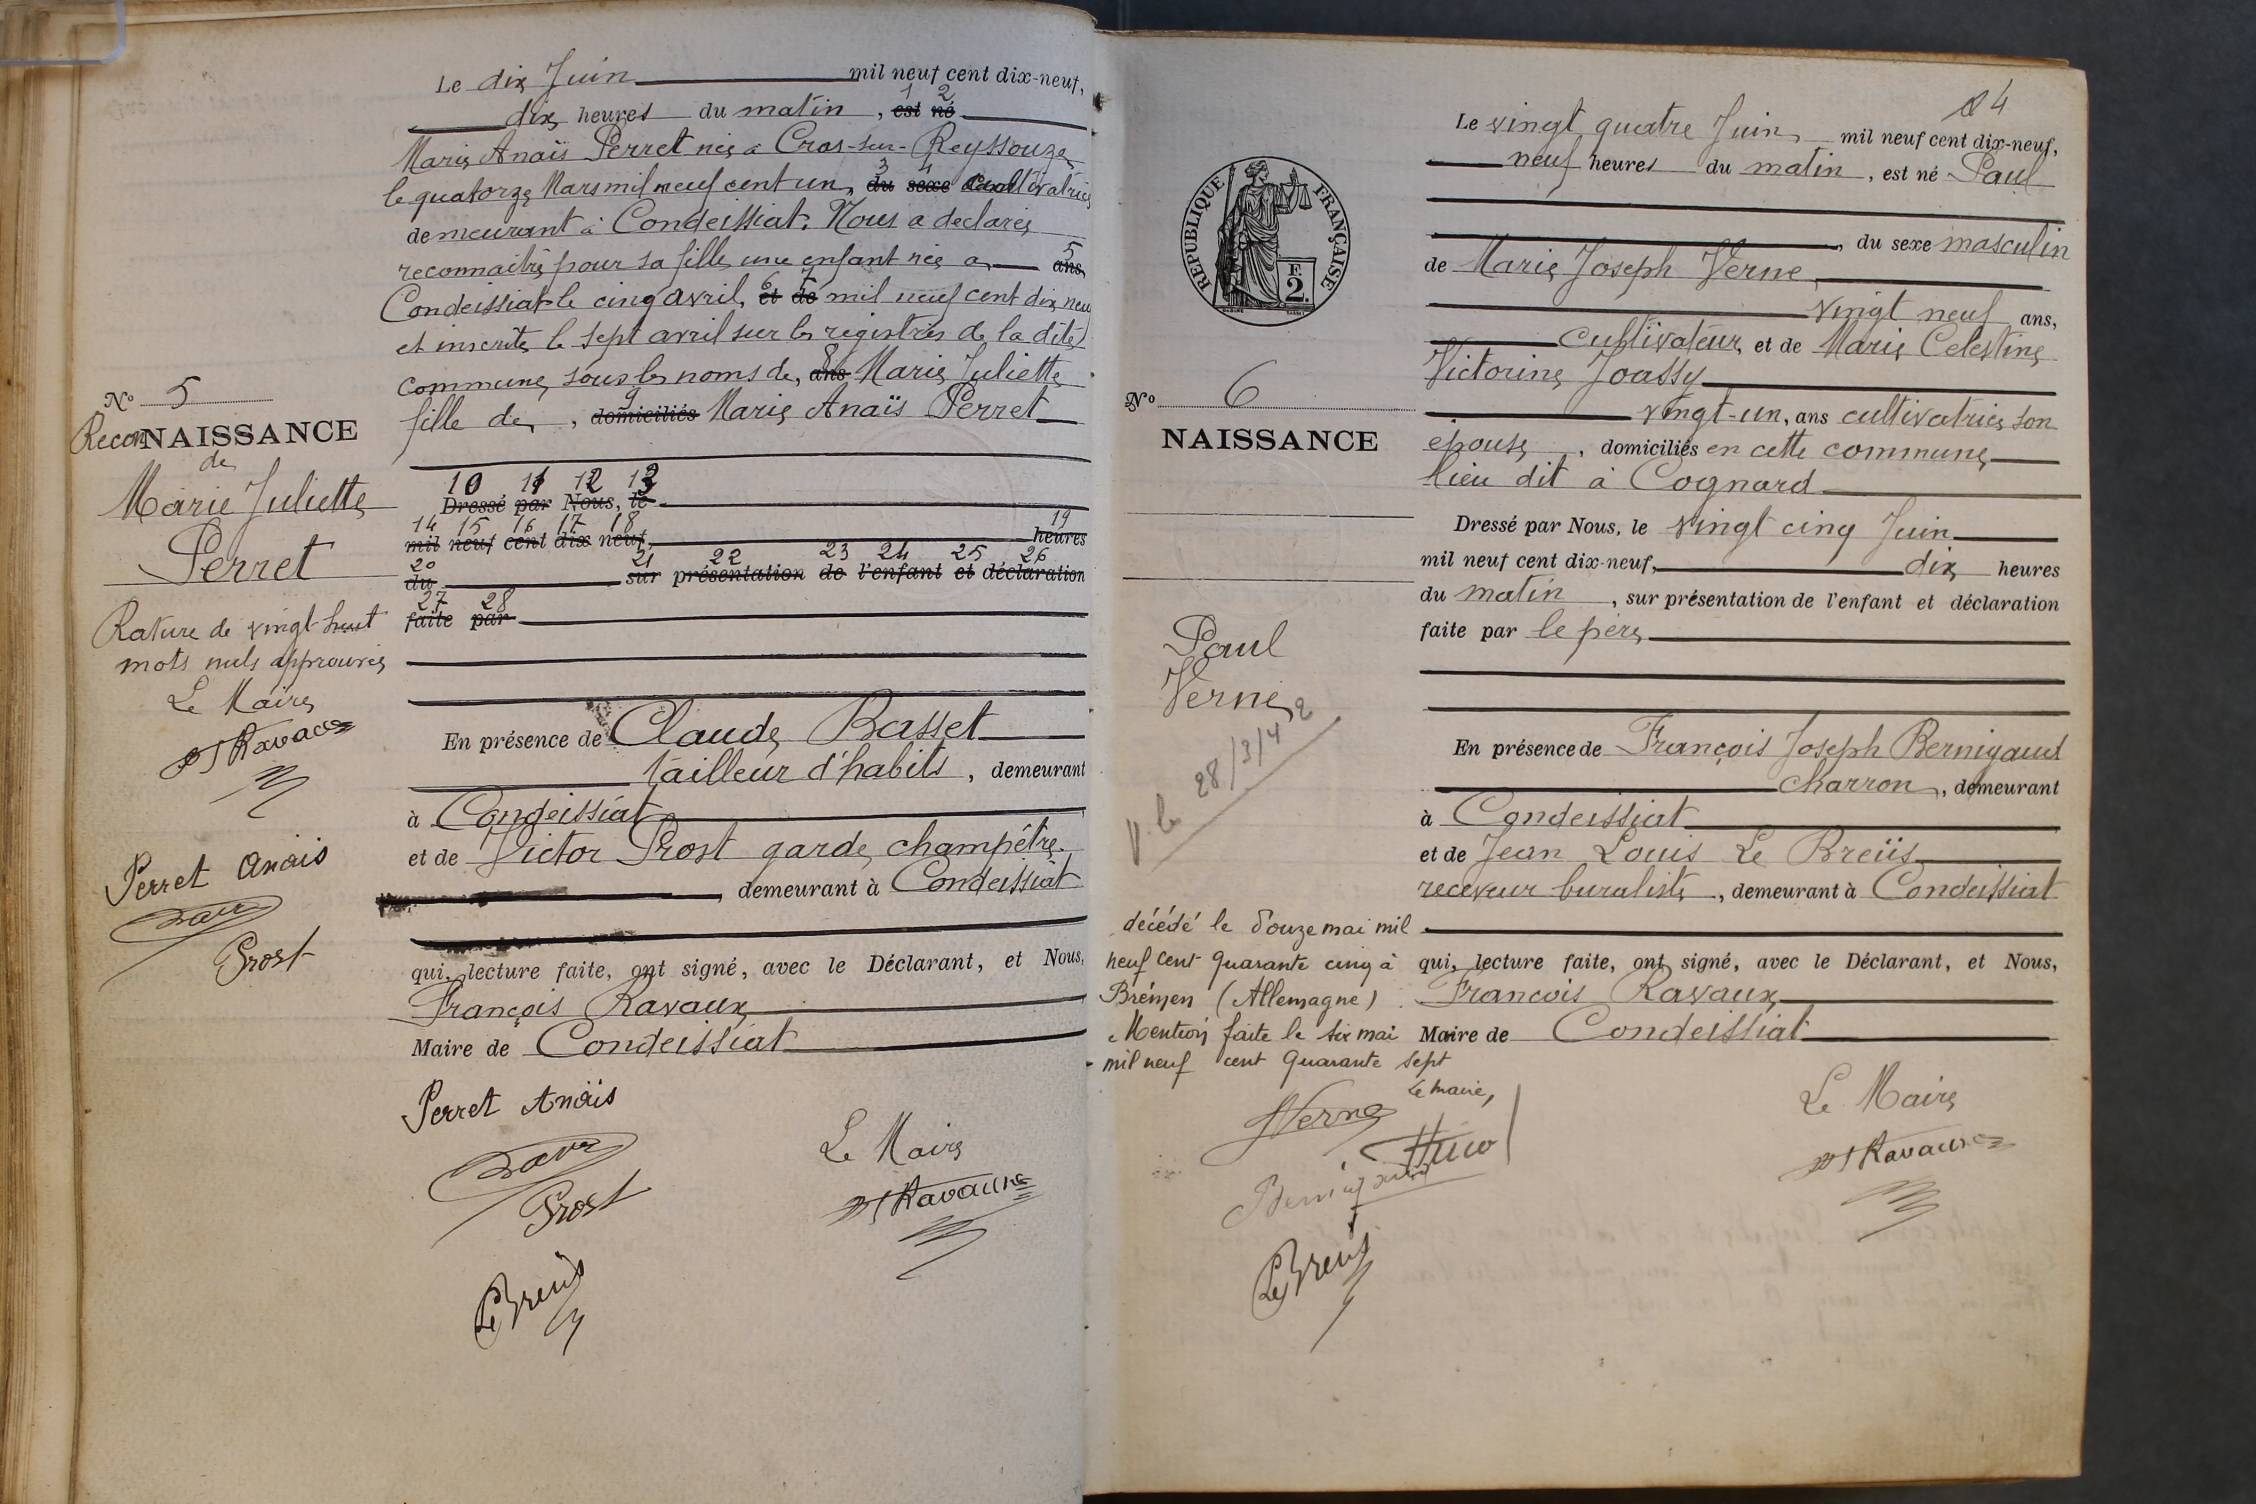 Le dix Juin mil neuf cent dix-neuf,
dix heures du matin, est né
1 2
Marie Anaïs Perret née à Cras-sur-Reyssouze
le quatorze Mars mil neuf cent un, du sexe Cultivatrice
3 4
demeurant à Condeissiat. Nous a déclarés
reconnaître pour sa fille une enfant née a ans
5
Condeissiat le cinq avril, et de mil neuf cent dix neuf
6 7
et inscrite le sept avril sur les registres de la dite
commune sous les noms de, ans Marie Juliette
8
fille de, domiciliés Marie Anaïs Perret
9
10 11 12 13
Dressé par Nous, le
14 15 16 17 18 19
mil neuf cent dix neuf, heures
20 21 22 23 24 25 26
du sur présentation de l'enfant et déclaration
27 28
faite par
En présence de Claude Basset
tailleur d'habits, demeurant
à Condeissiat
et de Victor Prost garde champêtre
, demeurant à Condeissiat
qui, lecture faite, ont signé, avec le Déclarant, et Nous,
François Ravaux
Maire de Condeissiat
Perret Anaïs
Prost
Le Breüs
Le Maire
Ravaux
No 5
ReconNAISSANCE
de
Marie Juliette
Perret
Rature de vingt-huit
mots nuls approuvés
Le Maire
Ravaux
Perret Anaïs
Prost
24
Le vingt quatre Juin mil neuf cent dix-neuf,
neuf heures du matin, est né Paul
, du sexe masculin
de Marie Joseph Verne
vingt neuf ans,
cultivateur, et de Marie Celestine
Victorine Joassy
vingt-un, ans cultivatrice son
épouse, domiciliés en cette commune
lieu dit à Cognard
Dressé par Nous, le vingt cinq Juin
mil neuf cent dix-neuf, dix heures
du matin, sur présentation de l'enfant et déclaration
faite par le père
En présence de François Joseph Bernigaud
charron, demeurant
à Condeissiat
et de Jean Louis Le Breüs
receveur buraliste, demeurant à Condeissiat
qui, lecture faite, ont signé, avec le Déclarant, et Nous,
François Ravaux
Maire de Condeissiat
Le Maire
Ravaux
RÉPUBLIQUE FRANÇAISE
F.
2.
No 6
NAISSANCE
Paul
Verne
V. le 28/3/42
décédé le douze mai mil
neuf cent quarante cinq à
Brêmen (Allemagne)
Mention faite le six mai
mil neuf cent quarante sept
Le maire,
JVerne
Bernigaud
Le Breüs